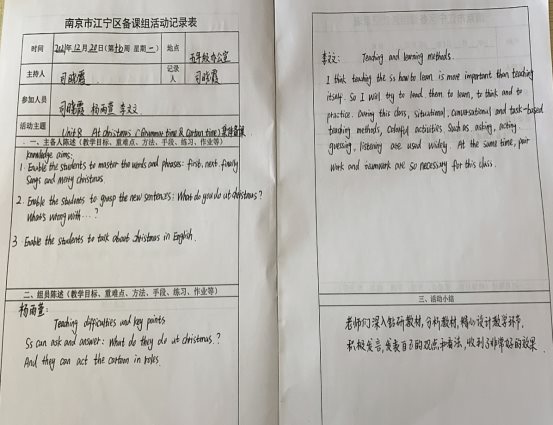 南京市江宁区备课组活动记录表
时间 2021年12月20日(第16周 星期一) 地点 五年级办公室
主持人 司晓霞 记录人 司晓霞
参加人员 司晓霞 杨雨萱 李文文
活动主题 Unit 8 At christmas (Grammar time & Cartoon time) 集体备课
一、主备人陈述(教学目标、重难点、方法、手段、练习、作业等)
knowledge aims:
1. Enable the students to master the words and phrases: first, next, finally
songs and merry christmas
2. Enable the students to grasp the new sentences: What do you do at christmas?
What's wrong with...?
3 Enable the students to talk about christmas in English.
二、组员陈述(教学目标、重难点、方法、手段、练习、作业等)
杨雨萱:
Teaching difficulties and key points
Ss can ask and answer: What do they do at christmas?
And they can act the cartoon in roles.
李文文: Teaching and learning methods
I think teaching the ss how to learn is more important than teaching
itself. So I will try to lead them to learn, to think and to
practice. During this class, situational, conversational and task-based
teaching methods, colorful activities such as asking, acting
guessing, listening are used widely. At the same time, pair
work and teamwork are so necessary for this class.
三、活动小结
老师们深入钻研教材,分析教材,精心设计教学环节,
积极发言,发表自己的观点和看法,收到了非常好的效果.